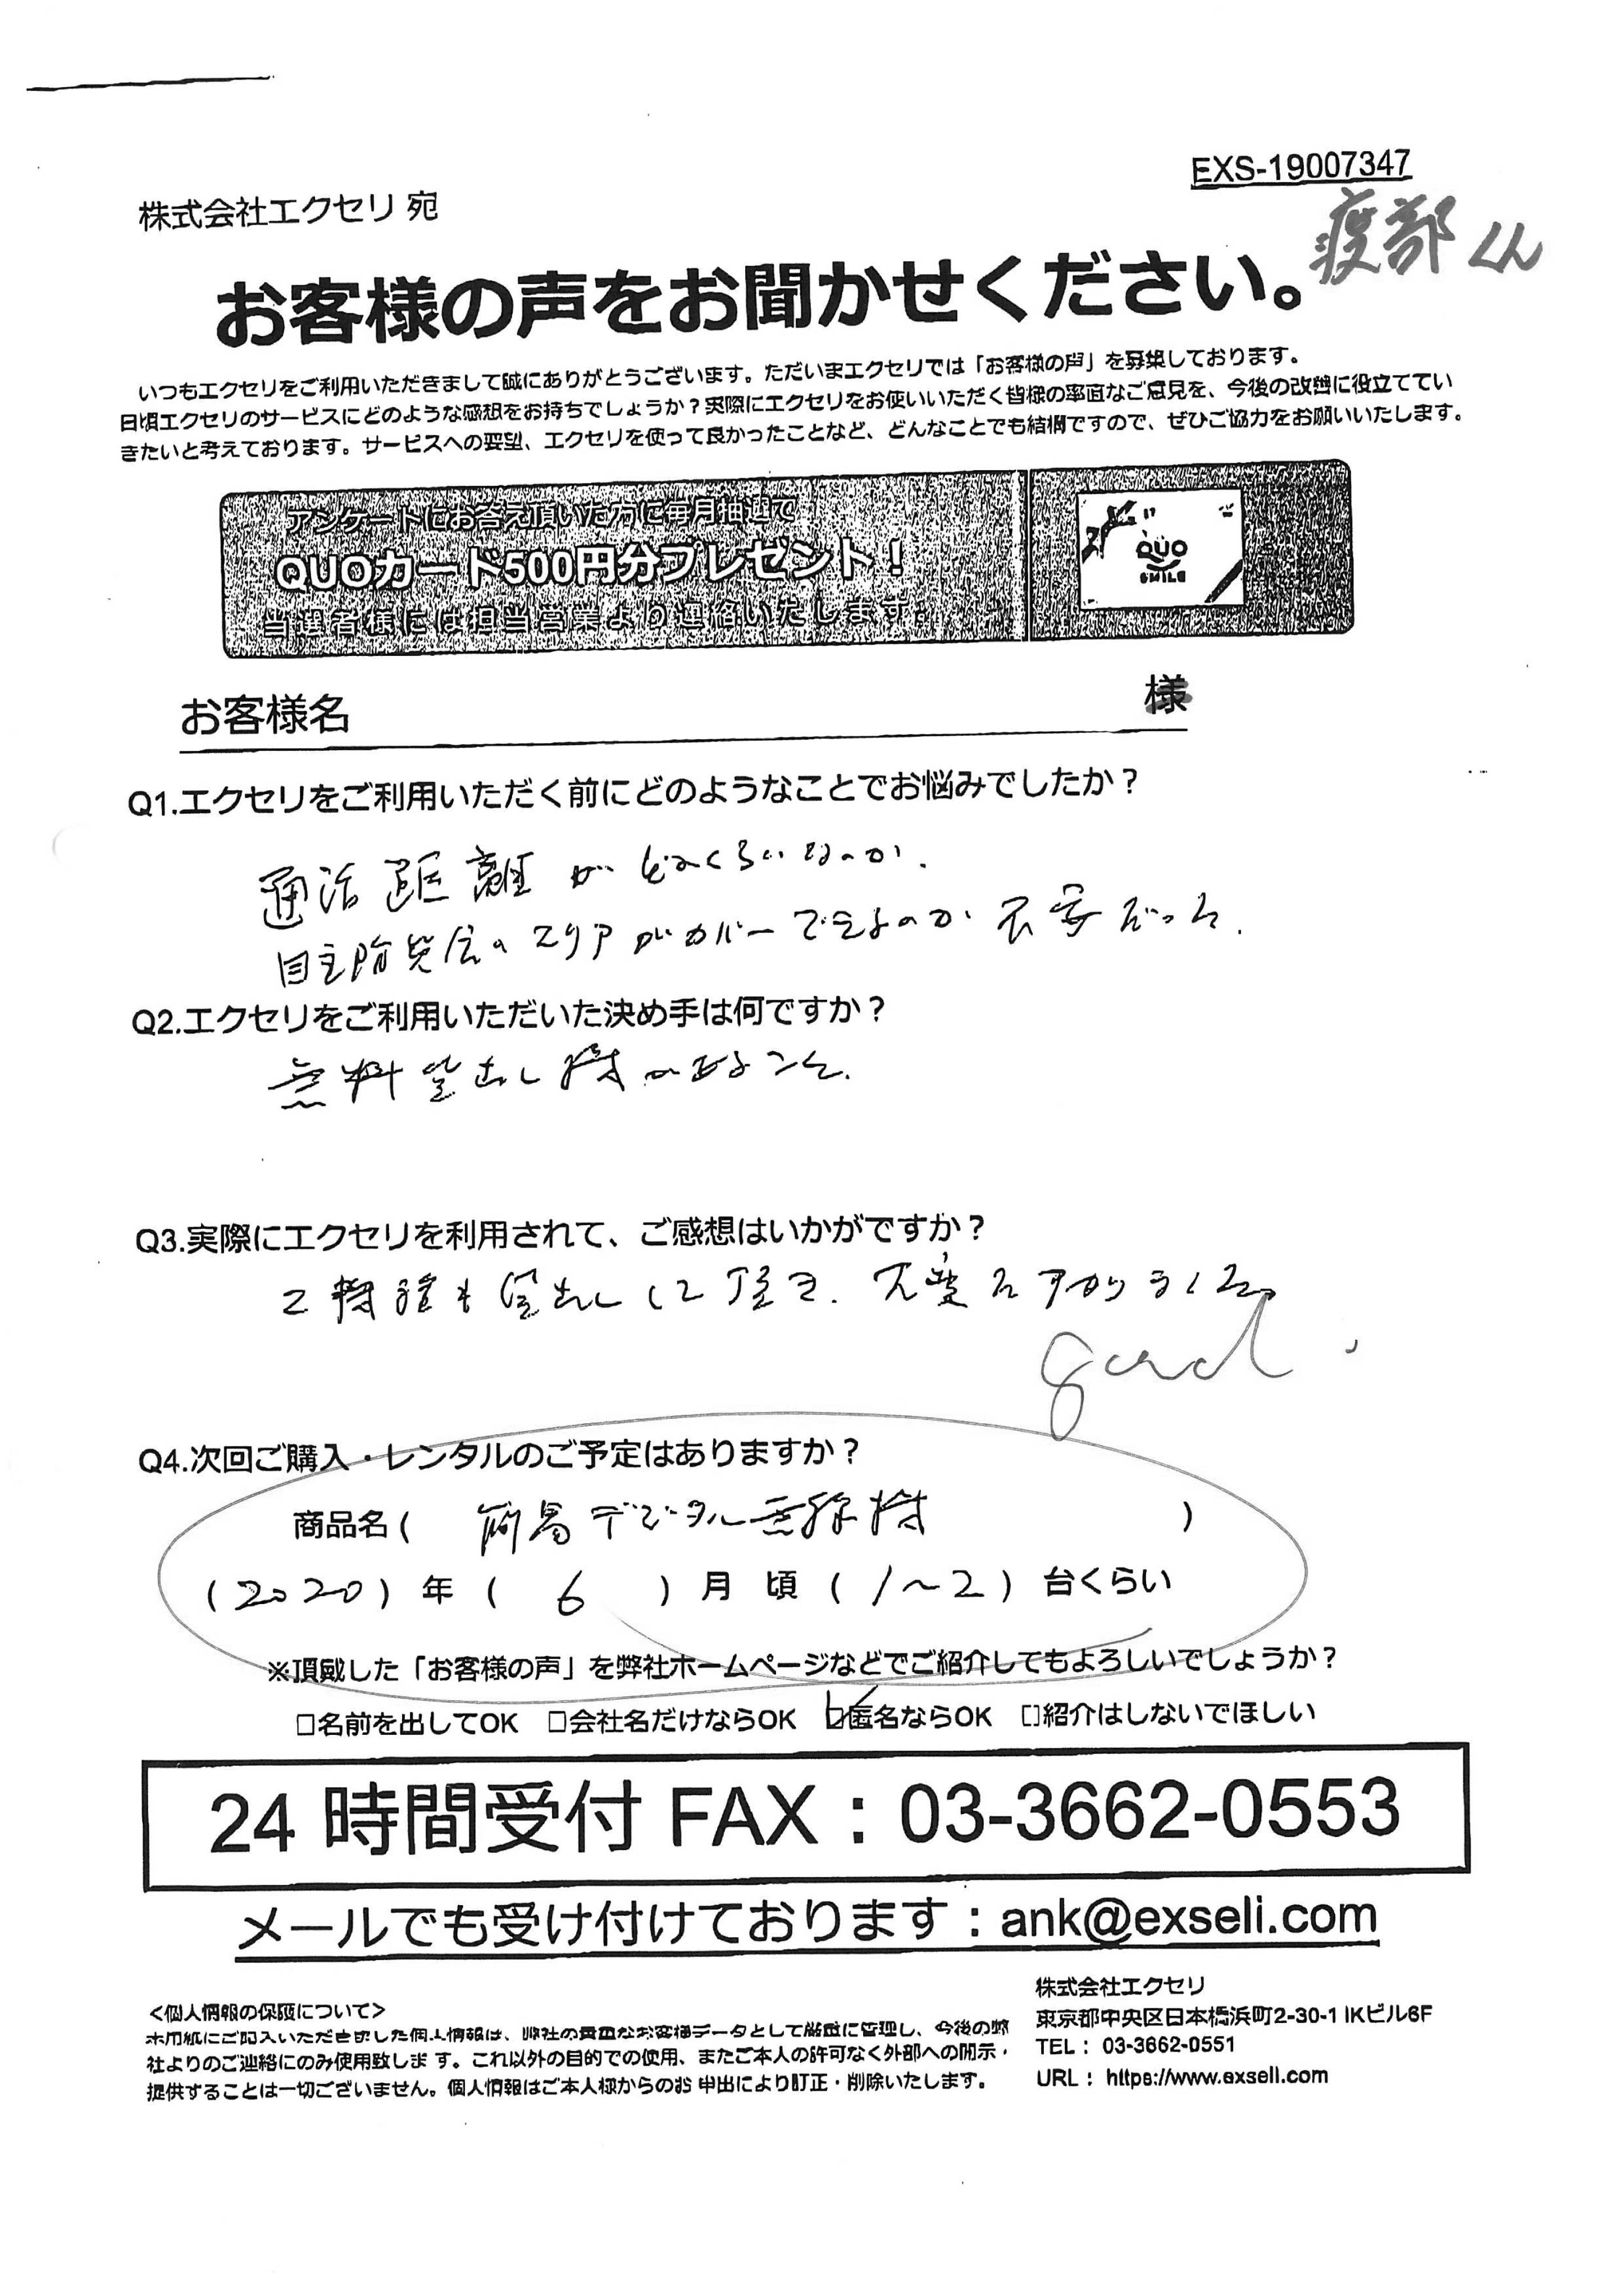 EXS-19007347
渡部くん
株式会社エクセリ 宛
お客様の声をお聞かせください。
いつもエクセリをご利用いただきまして誠にありがとうございます。ただいまエクセリでは「お客様の声」を募集しております。
日頃エクセリのサービスにどのような感想をお持ちでしょうか？実際にエクセリをお使いいただく皆様の率直なご意見を、今後の改善に役立ててい
きたいと考えております。サービスへの要望、エクセリを使って良かったことなど、どんなことでも結構ですので、ぜひご協力をお願いいたします。
アンケートにお答え頂いた方に毎月抽選で
QUOカード500円分プレゼント！
当選者様には担当営業より連絡いたします。
QUO
SMILE
お客様名 様
Q1.エクセリをご利用いただく前にどのようなことでお悩みでしたか？
通話距離がどれくらいなのか.
自主防災会のエリアがカバーできるのか不安だった.
Q2.エクセリをご利用いただいた決め手は何ですか？
無料貸出し機があること.
Q3.実際にエクセリを利用されて、ご感想はいかがですか？
2機種も貸出しして頂き、大変たすかりました。
good
Q4.次回ご購入・レンタルのご予定はありますか？
商品名( 簡易デジタル無線機 )
(2020)年( 6 )月 頃 (1〜2) 台くらい
※頂戴した「お客様の声」を弊社ホームページなどでご紹介してもよろしいでしょうか？
□名前を出してOK □会社名だけならOK ☑匿名ならOK □紹介はしないでほしい
24 時間受付 FAX：03-3662-0553
メールでも受け付けております：ank@exseli.com
<個人情報の保護について>
本用紙にご記入いただきました個人情報は、弊社の貴重なお客様データとして厳重に管理し、今後の弊
社よりのご連絡にのみ使用致します。これ以外の目的での使用、またご本人の許可なく外部への開示・
提供することは一切ございません。個人情報はご本人様からのお申出により訂正・削除いたします。
株式会社エクセリ
東京都中央区日本橋浜町2-30-1 IKビル6F
TEL： 03-3662-0551
URL： https://www.exseli.com